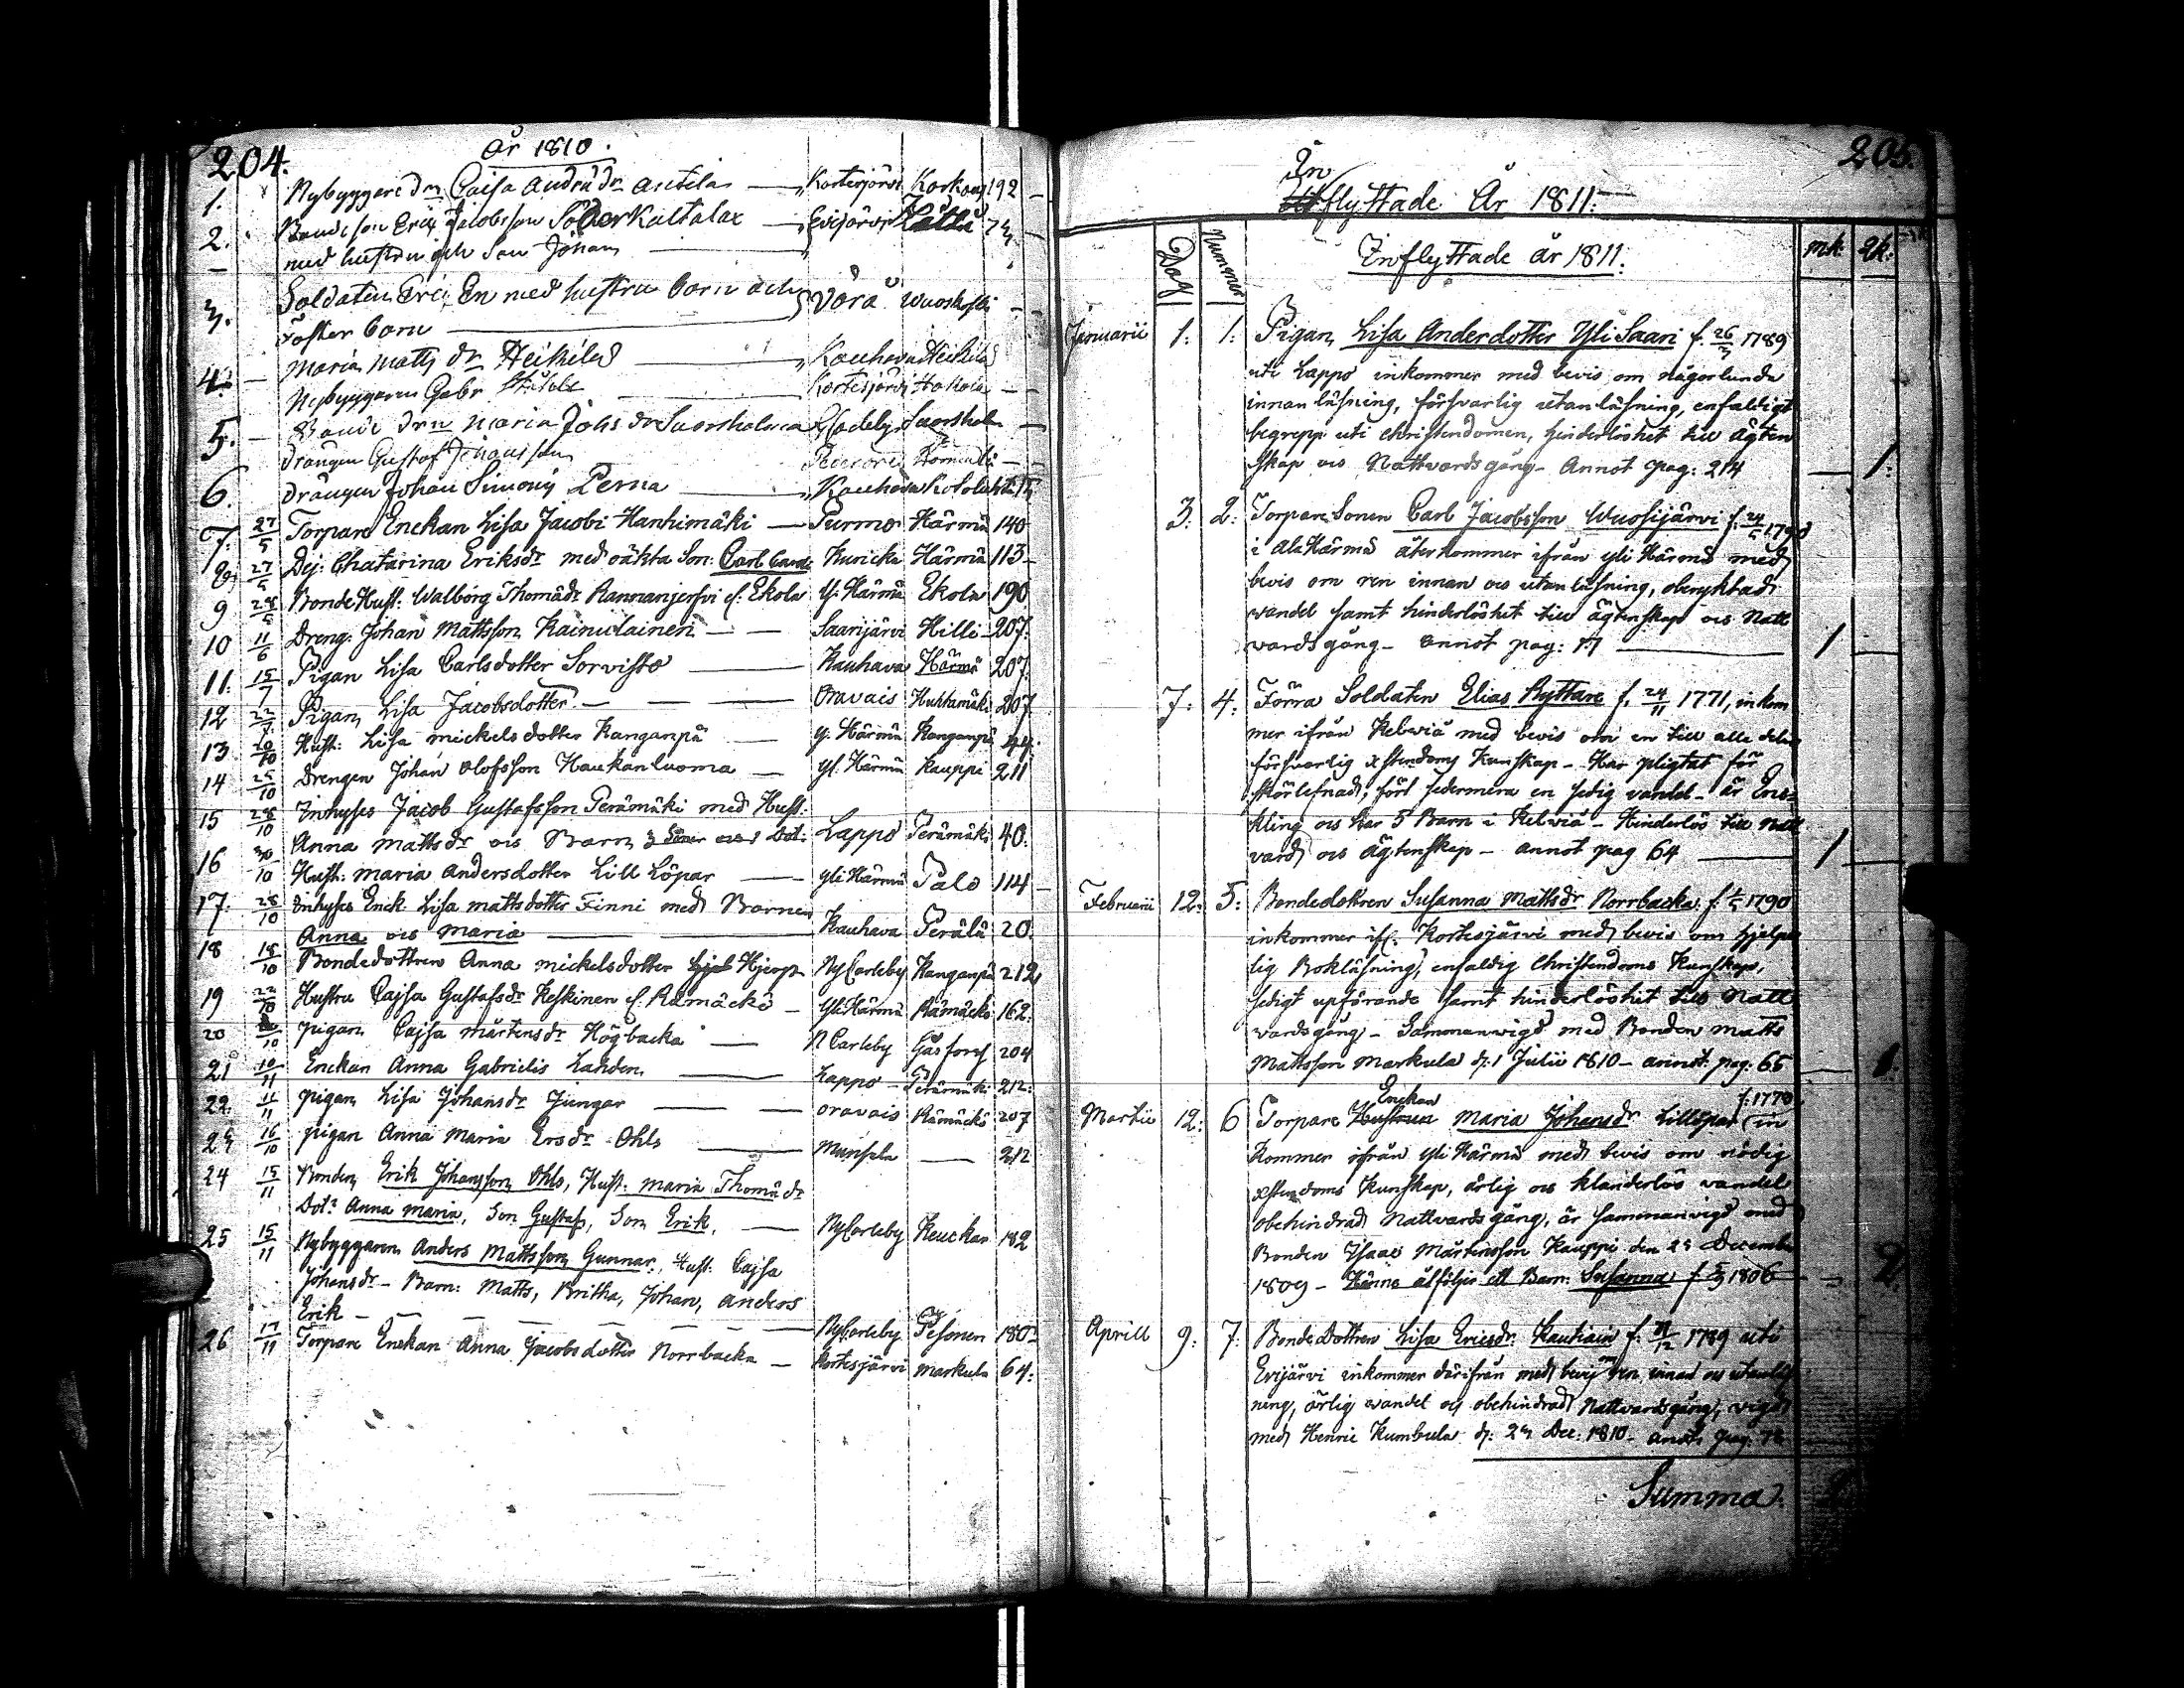 204.
År 1810.
1. Nybyggare drn Caisa Andrsdr Antila Kortesjärvi Korkon 192
2. Bondeson Eric Jacobsson Söderkaltalax Evijärvi
med hustru och Son Johan
3. Soldaten Eric En med hustru barn och Vörå
foster barn
4. Maria Matts dr Heikilä Kauhava Heikilä
Nybyggaren Gabr Kortesjärvi Hakola
5. Bonde drn Maria Johs dr Suorsholma Suorsholm
drängen Gustaf Johansson Pedersöre
6. drängen Johan Simons Perna Kauhava
7. 27/5 Torpare Enckan Lisa Jacobi Hanhimäki Purmo Härmä 140
8. 27/5 Dej: Chatarina Eriksdr med oäkta Son: Carl Kuricka Härmä 113
9 28/5 Bonde Hust: Walborg Thomædr Rannanjerfvi f. Ekola Y. Härmä Ekola 190
10 11/6 Dreng. Johan Mattsson Kainulainen Saarijärvi Hilli 207.
11. 15/7 Pigan Lisa Carlsdotter Sorvisto Kauhava Härmä 207.
12 22/7 Pigan Lisa Jacobsdotter Oravais Huhtamäki 207
13. 20/10 Hust: Lisa Mickelsdotter Kanganpä Y. Härmä Kanganpä 44.
14 25/10 Drengen Johan Olofsson Haukanluoma Yl. Härmä Kauppi 211
15 28/10 Inhyses Jacob Gustafsson Perämäki med Hust:
Anna Mattsdr och Barn 3 Söner och 1 Dot: Lappo Perämäki 40.
16 30/10 Hust: Maria Andersdotter Lill Löpar Yli Härmä Palo 114
17. 28/10 Inhyses Enck. Lisa Mattsdotter Finni med Barnen
Anna och Maria Kauhava Perälä 20.
18 18/10 Bondedottren Anna Mickelsdotter Hjerp NyCarleby Kanganpä 212
19 22/10 Hustru Cajsa Gustafsdr Keskinen f. Rämäckö Yli Härmä Rämäckö 162.
20 Pigan Cajsa Mårtensdr Högbacka N Carleby Gås forss 204
21 10/11 Enckan Anna Gabrielis Lahden Lappo Perämäki 212:
22. 11/11 Pigan Lisa Johansdr Jungar Oravais Rämäckö 207
23 16/10 Pigan Anna Maria Ersdr Ohls Munsala 212
24 15/11 Bonden Erik Johansson Ohls, Hust: Maria Thomædr
Dotr Anna Maria, Son Gustaf, Son Erik. NyCarleby Keuckar 182
25 15/11 Nybyggaren Anders Mattsson Gunnar, Hust: Cajsa
Johansdr - Barn: Matts, Britha, Johan, Anders
Erik NyCarleby Pesonen 180
26 17/11 Torpare Enckan Anna Jacobsdotter Norrbacka Kortesjärvi Markula 64.
205.
In
Utflyttade År 1811.
Dag Nummer Inflyttade år 1811. mk: qk:
Januarii 1. 1. Pigan Lisa Andersdotter Yli Saari f. 26/3 1789
uti Lappo inkommer med bevis om någorlunda
innanläsning, försvarlig utanläsning, enfaldigt
begrepp uti Christendomen, hinderlöshet till ägten
skap och Nattvards gång - Annot pag: 214 1.
3. 2. Torpare Sonen Carl Jacobsson Wuosijärvi f. 24/5 1790
i Ala Härmä återkommer ifrån Yli Härmä med
bevis om ren innan och utanläsning, oberyktad
vandel samt hinderlöshet till ägtenskap och Natt
vardsgång - Annot pag: 17 1
7. 4. Förra Soldaten Elias Ryttare f. 24/11 1771, inkom
mer ifrån Kelviå med bevis om en till alla delar
försvarlig Xstendoms Kunskap - Har pligtat för
skörlefnad, fört sedermera en sedig vandel - är Enc-
kling och har 5 Barn i Kelviå - Hinderlös till Natt
vard och ägtenskap - Annot pag 64 1
Februarii 12. 5. Bondedottren Susanna Mattsdr Norrbacka f. 1/5 1790
inkommer ifr. Kortesjärvi med bevis om hjelp
lig Bokläsning, enfaldig Christendoms Kunskap,
sedigt upförande samt hinderlöshet till Natt
vardsgång - Sammanvigd med Bonden Matts
Mattsson Markula d. 1 Julii 1810 - annot. pag: 65 1.
Martii 12. 6 Torpare Hustrun Enckan Maria Johansdr Lillöpar f. 1770 in
kommer ifrån Yli Härmä med bevis om nödig
Xstendoms Kunskap, ärlig och klanderlös vandel
obehindrad Nattvardsgång, är sammanvigd med
Bonden Isaac Mårtensson Kauppi den 25 December
1809 - Henne åtföljer ett Barn: Susanna f 1806 2.
Aprill 9. 7. Bonde Dottren Lisa Ericsdr Kautiain f. 21/12 1789 uti
Evijärvi inkommer därifrån med bevis om ren innan och utanläs
ning, ärlig vandel och obehindrad Nattvardsgång, vigd
med Henric Kumbula d. 25 Dec: 1810 - Annot. pag:
Summa